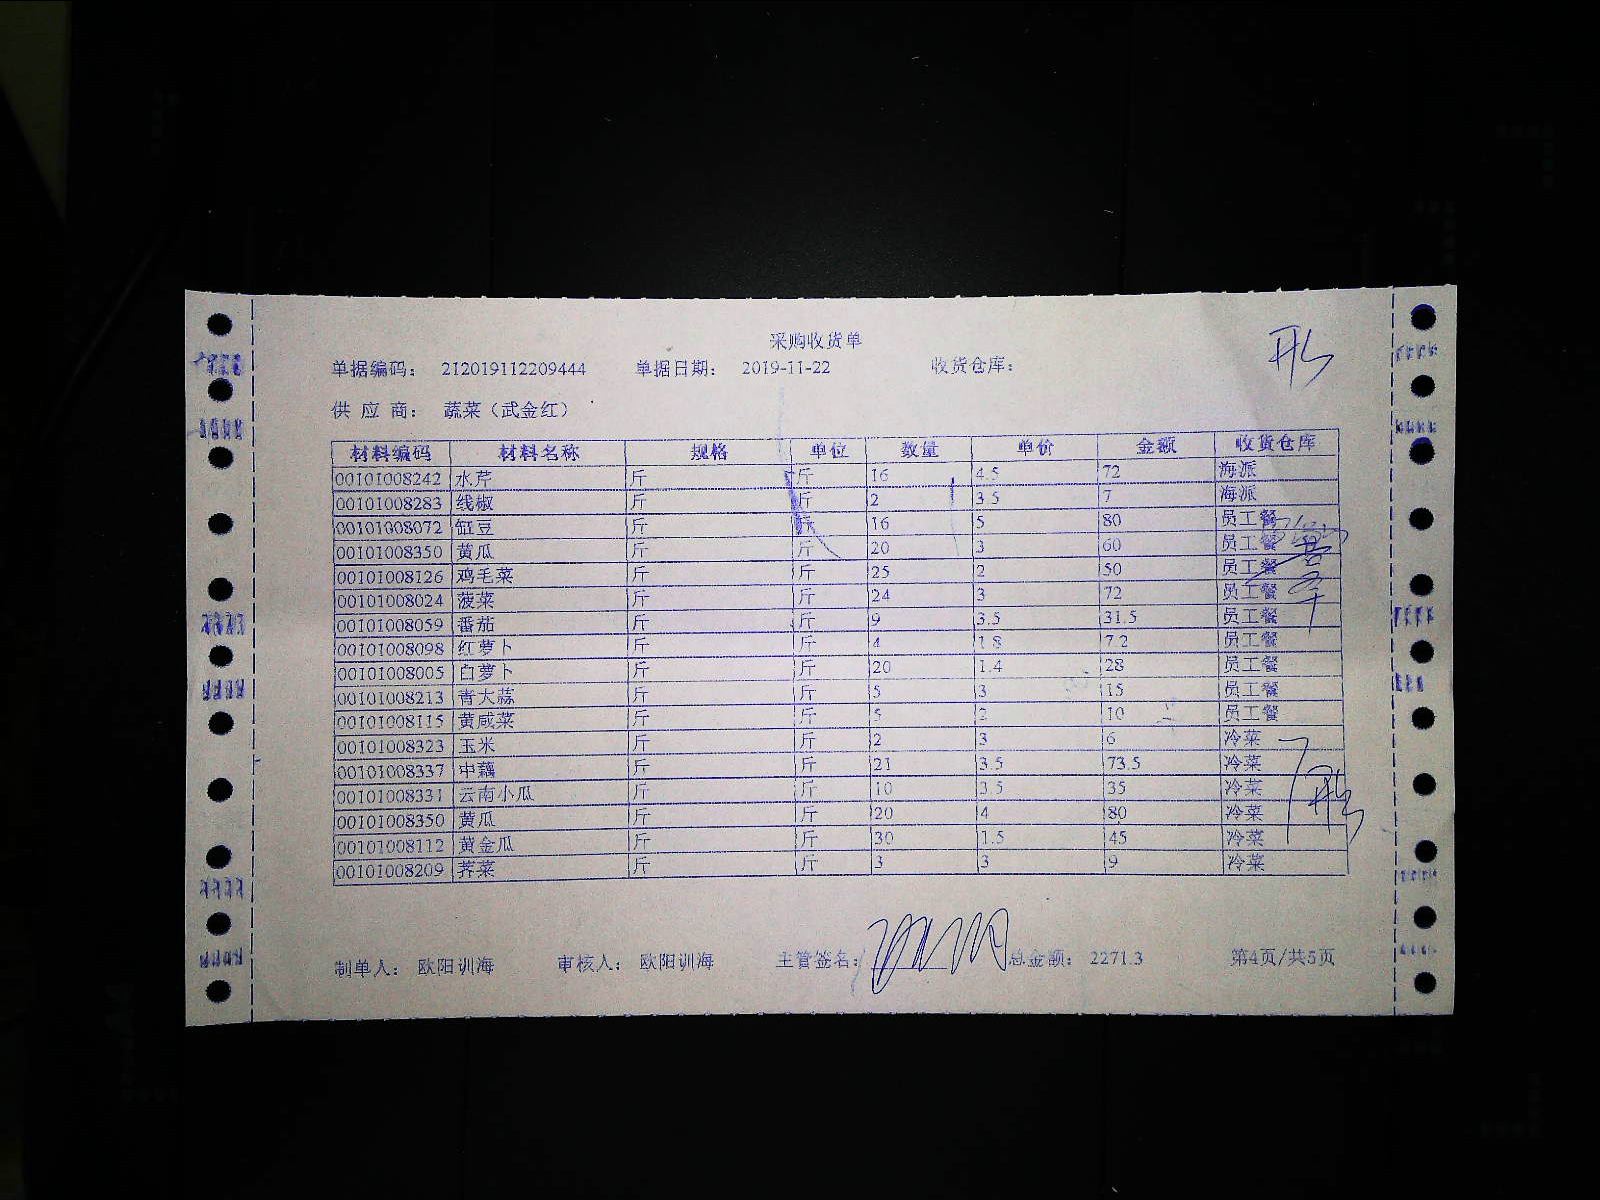 采购收货单
单据编码： 212019112209444 单据日期： 2019-11-22 收货仓库：
供 应 商： 蔬菜（武金红）
材料编码 材料名称 规格 单位 数量 单价 金额 收货仓库
00101008242 水芹 斤 斤 16 4.5 72 海派
00101008283 线椒 斤 斤 2 3.5 7 海派
00101008072 缸豆 斤 斤 16 5 80 员工餐
00101008350 黄瓜 斤 斤 20 3 60 员工餐
00101008126 鸡毛菜 斤 斤 25 2 50 员工餐
00101008024 菠菜 斤 斤 24 3 72 员工餐
00101008059 番茄 斤 斤 9 3.5 31.5 员工餐
00101008098 红萝卜 斤 斤 4 1.8 7.2 员工餐
00101008005 白萝卜 斤 斤 20 1.4 28 员工餐
00101008213 青大蒜 斤 斤 5 3 15 员工餐
00101008115 黄咸菜 斤 斤 5 2 10 员工餐
00101008323 玉米 斤 斤 2 3 6 冷菜
00101008337 中藕 斤 斤 21 3.5 73.5 冷菜
00101008331 云南小瓜 斤 斤 10 3.5 35 冷菜
00101008350 黄瓜 斤 斤 20 4 80 冷菜
00101008112 黄金瓜 斤 斤 30 1.5 45 冷菜
00101008209 荠菜 斤 斤 3 3 9 冷菜
制单人： 欧阳训海 审核人： 欧阳训海 主管签名： 总金额： 2271.3 第4页/共5页